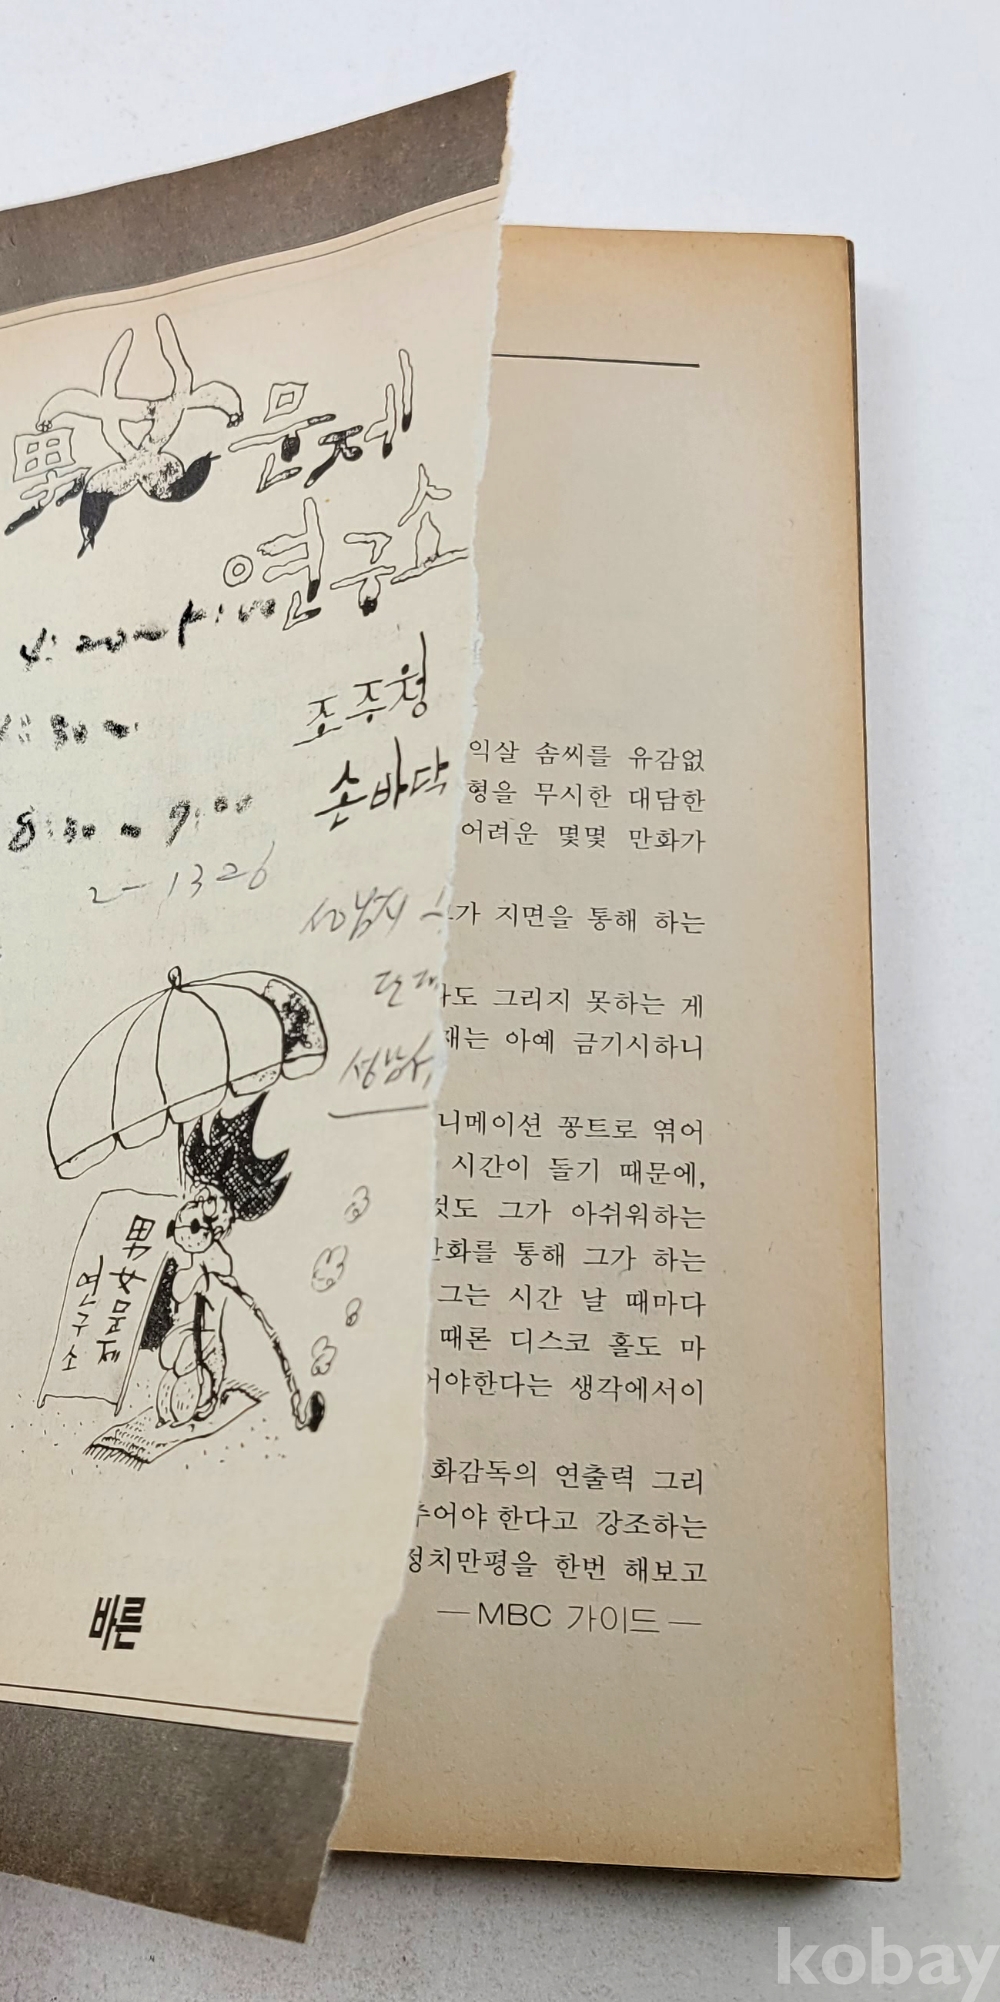 男女문제
연구소
4:20~
:30~
조주청
손바닥
8:30~9:00
2-1326
성남시
단대
성남시
男女문제
연구소
바른
익살 솜씨를 유감없
형을 무시한 대담한
어려운 몇몇 만화가
가 지면을 통해 하는
도 그리지 못하는 게
재는 아예 금기시하니
니메이션 꽁트로 엮어
시간이 들기 때문에,
것도 그가 아쉬워하는
화를 통해 그가 하는
그는 시간 날 때마다
때론 디스코 홀도 마
어야한다는 생각에서이
화감독의 연출력 그리
추어야 한다고 강조하는
정치만평을 한번 해보고
— MBC 가이드 —
kobay